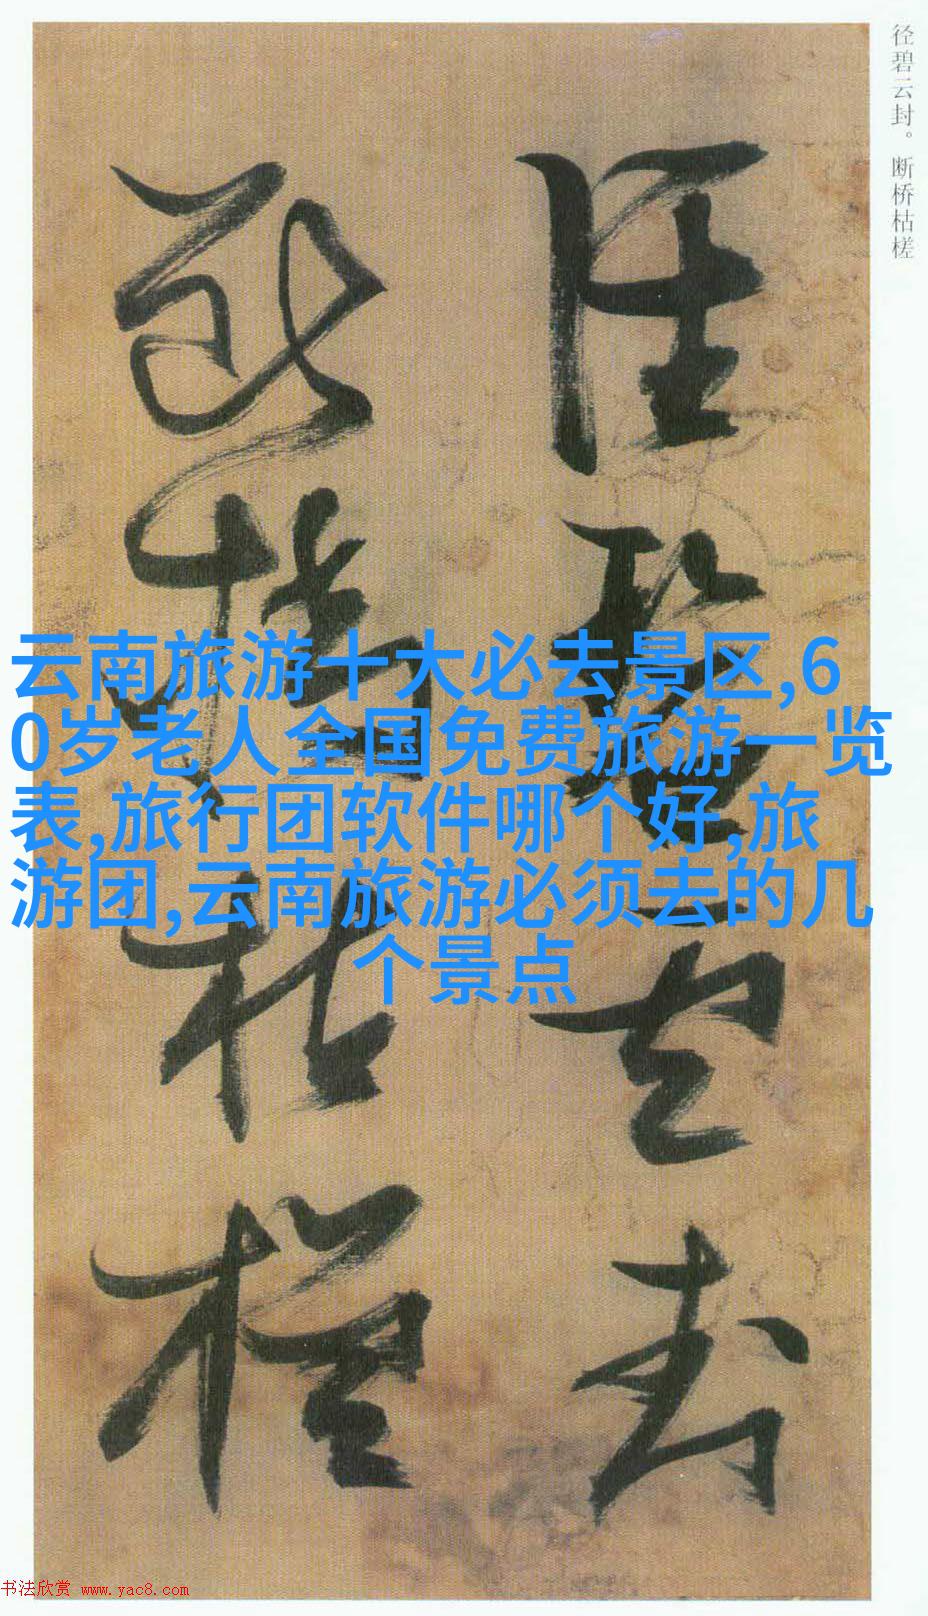 径碧云封。断桥枯槎
径碧云封
断桥枯槎
云南旅游十大必去景区,6
0岁老人全国免费旅游一览
表,旅行团软件哪个好,旅
游团,云南旅游必须去的几
个景点
书法欣赏 www.yac8.com